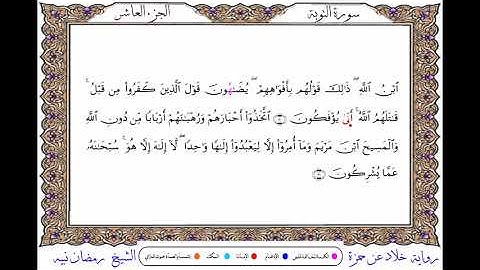 سورة التوبة
الجزء العاشر
ٱبْنُ ٱللَّهِ ۖ ذَٰلِكَ قَوْلُهُم بِأَفْوَٰهِهِمْ ۖ يُضَٰهُونَ قَوْلَ ٱلَّذِينَ كَفَرُوا۟ مِن قَبْلُ ۚ
قَٰتَلَهُمُ ٱللَّهُ ۚ أَنَّىٰ يُؤْفَكُونَ ٣٠ ٱتَّخَذُوٓا۟ أَحْبَارَهُمْ وَرُهْبَٰنَهُمْ أَرْبَابًا مِّن دُونِ ٱللَّهِ
وَٱلْمَسِيحَ ٱبْنَ مَرْيَمَ وَمَآ أُمِرُوٓا۟ إِلَّا لِيَعْبُدُوٓا۟ إِلَٰهًا وَٰحِدًا ۖ لَّآ إِلَٰهَ إِلَّا هُوَ ۚ سُبْحَٰنَهُۥ
عَمَّا يُشْرِكُونَ ٣١
رواية خلاد عن حمزة
الشيخ رمضان نبيه